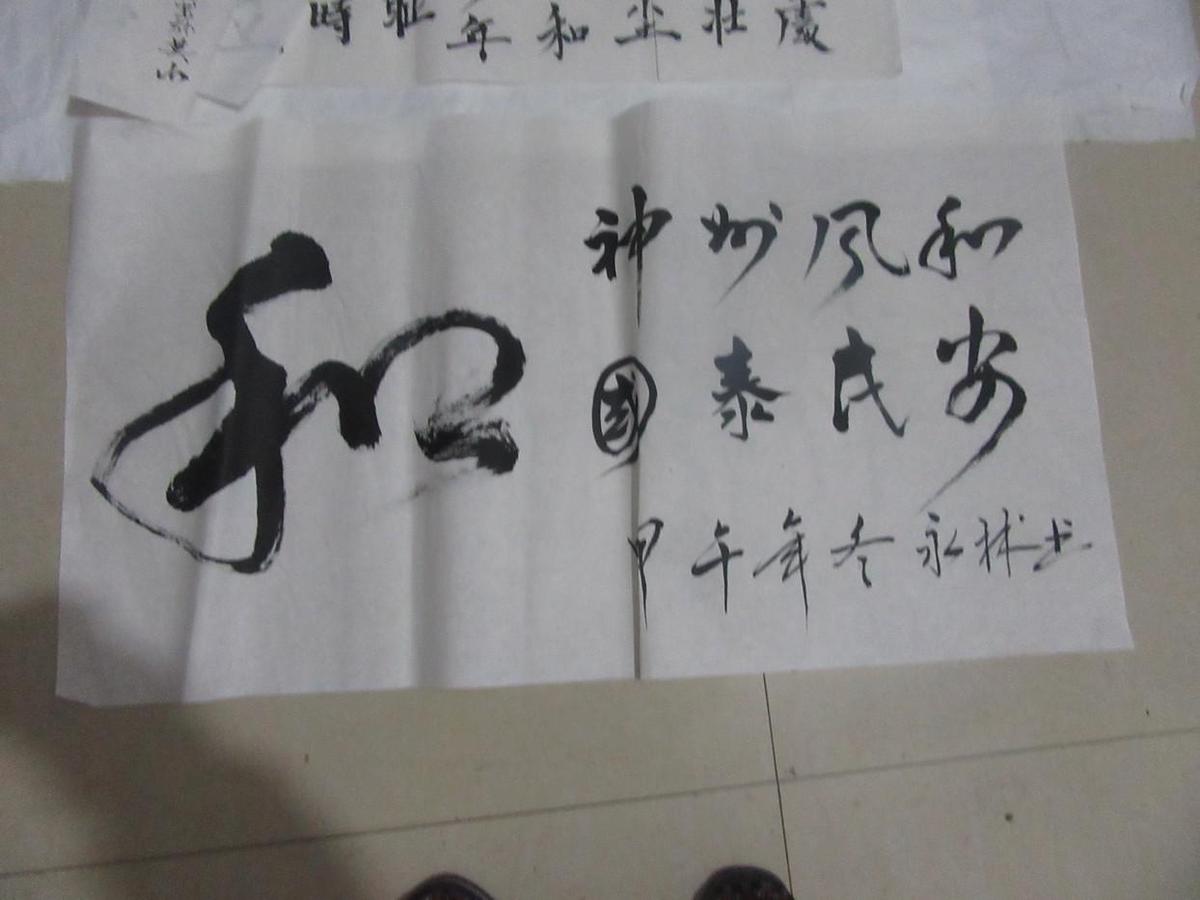 時 年 和 壯 慶
和
神州风和
國泰民安
甲午年冬永林书